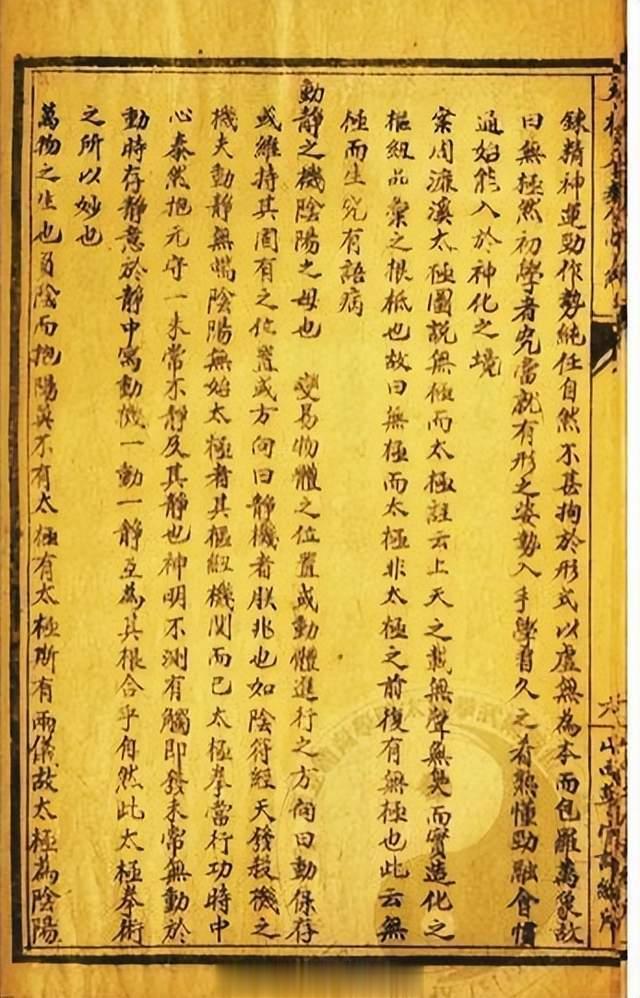 錬精神運勁作勢純任自然不甚拘於形式以虛無為本而包羅萬象故
曰無極然初學者究當就有形之姿勢入手學習久之着熟懂勁融會慣
通始能入於神化之境
案周濂溪太極圖說無極而太極註云上天之載無聲無臭而實造化之
樞紐品彙之根柢也故曰無極而太極非太極之前復有無極也此云無
極而生究有語病
動靜之機陰陽之母也 變易物體之位置或動體進行之方向曰動保存
或維持其固有之位置或方向曰靜機者朕兆也如陰符經天發殺機之
機夫動靜無端陰陽無始太極者其樞紐機關而已太極拳當行功時中
心泰然抱元守一未常不靜及其靜也神明不測有觸即發未常無動於
動時存靜意於靜中寓動機一動一靜互為其根合乎自然此太極拳術
之所以妙也
萬物之生也負陰而抱陽莫不有太極有太極斯有兩儀故太極為陰陽